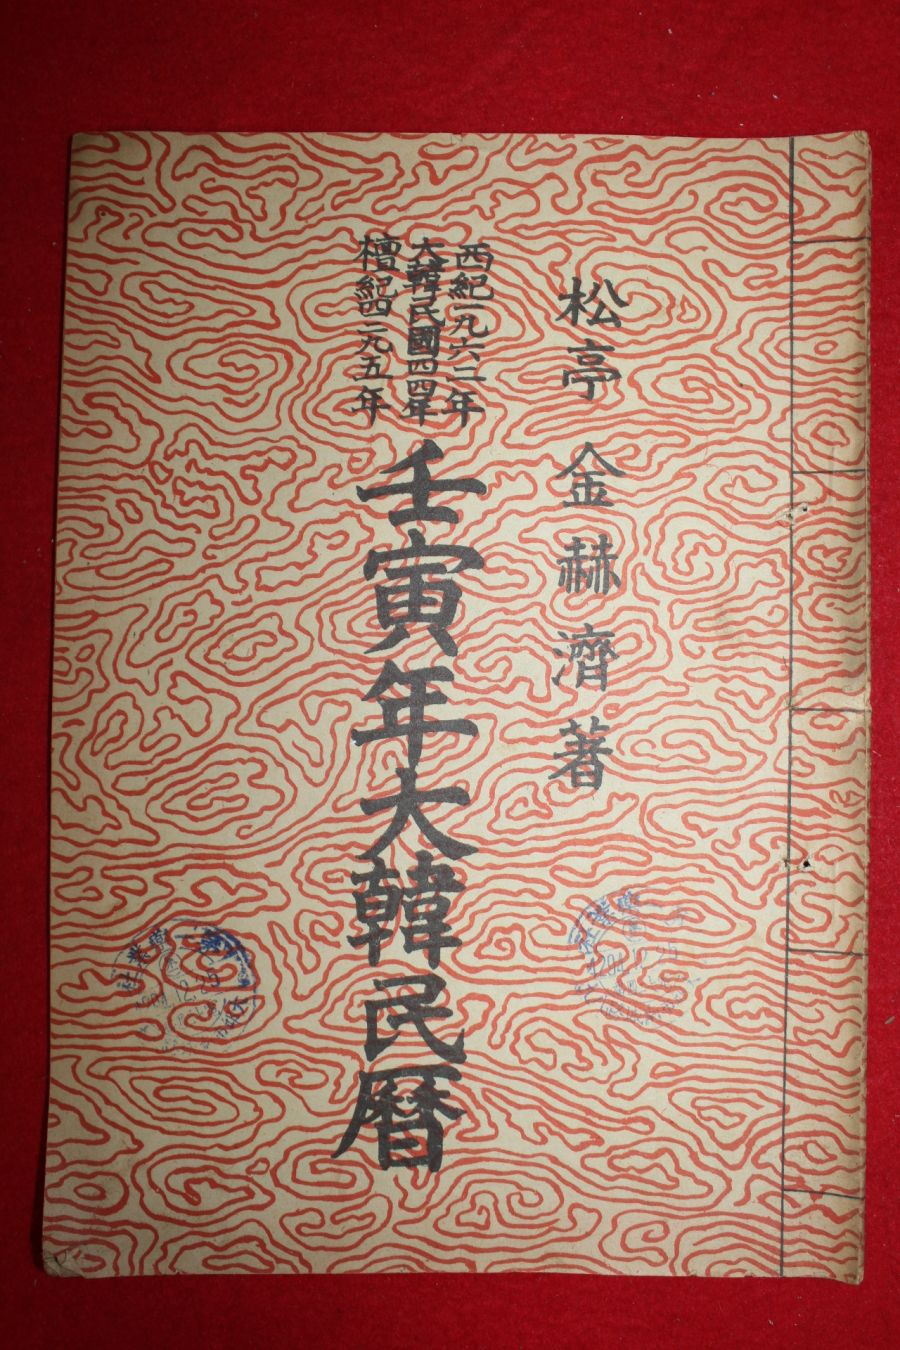 松亭 金赫濟 著
西紀一九六二年
大韓民國四四年
檀紀四二九五年
壬寅年大韓民曆
4294.12.25
4294.12.25